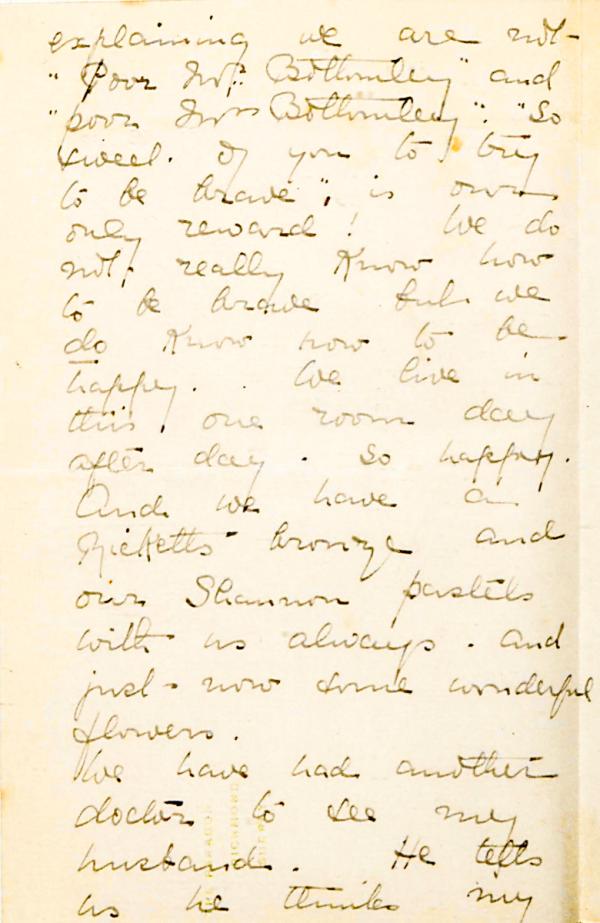 explaining we are not
"Poor Mr. Bottomley" and
"poor Mrs Bottomley". "So
sweet of you to try
to be brave", is own
only reward! We do
not really know how
to be brave but we
do know how to be
happy. We live in
this one room day
after day. So happy.
And we have a
Ricketts bronze and
our Shannon pastels
with us always. and
just now some wonderful
flowers.
We have had another
doctor to see my
husband. He tells
us he thinks my